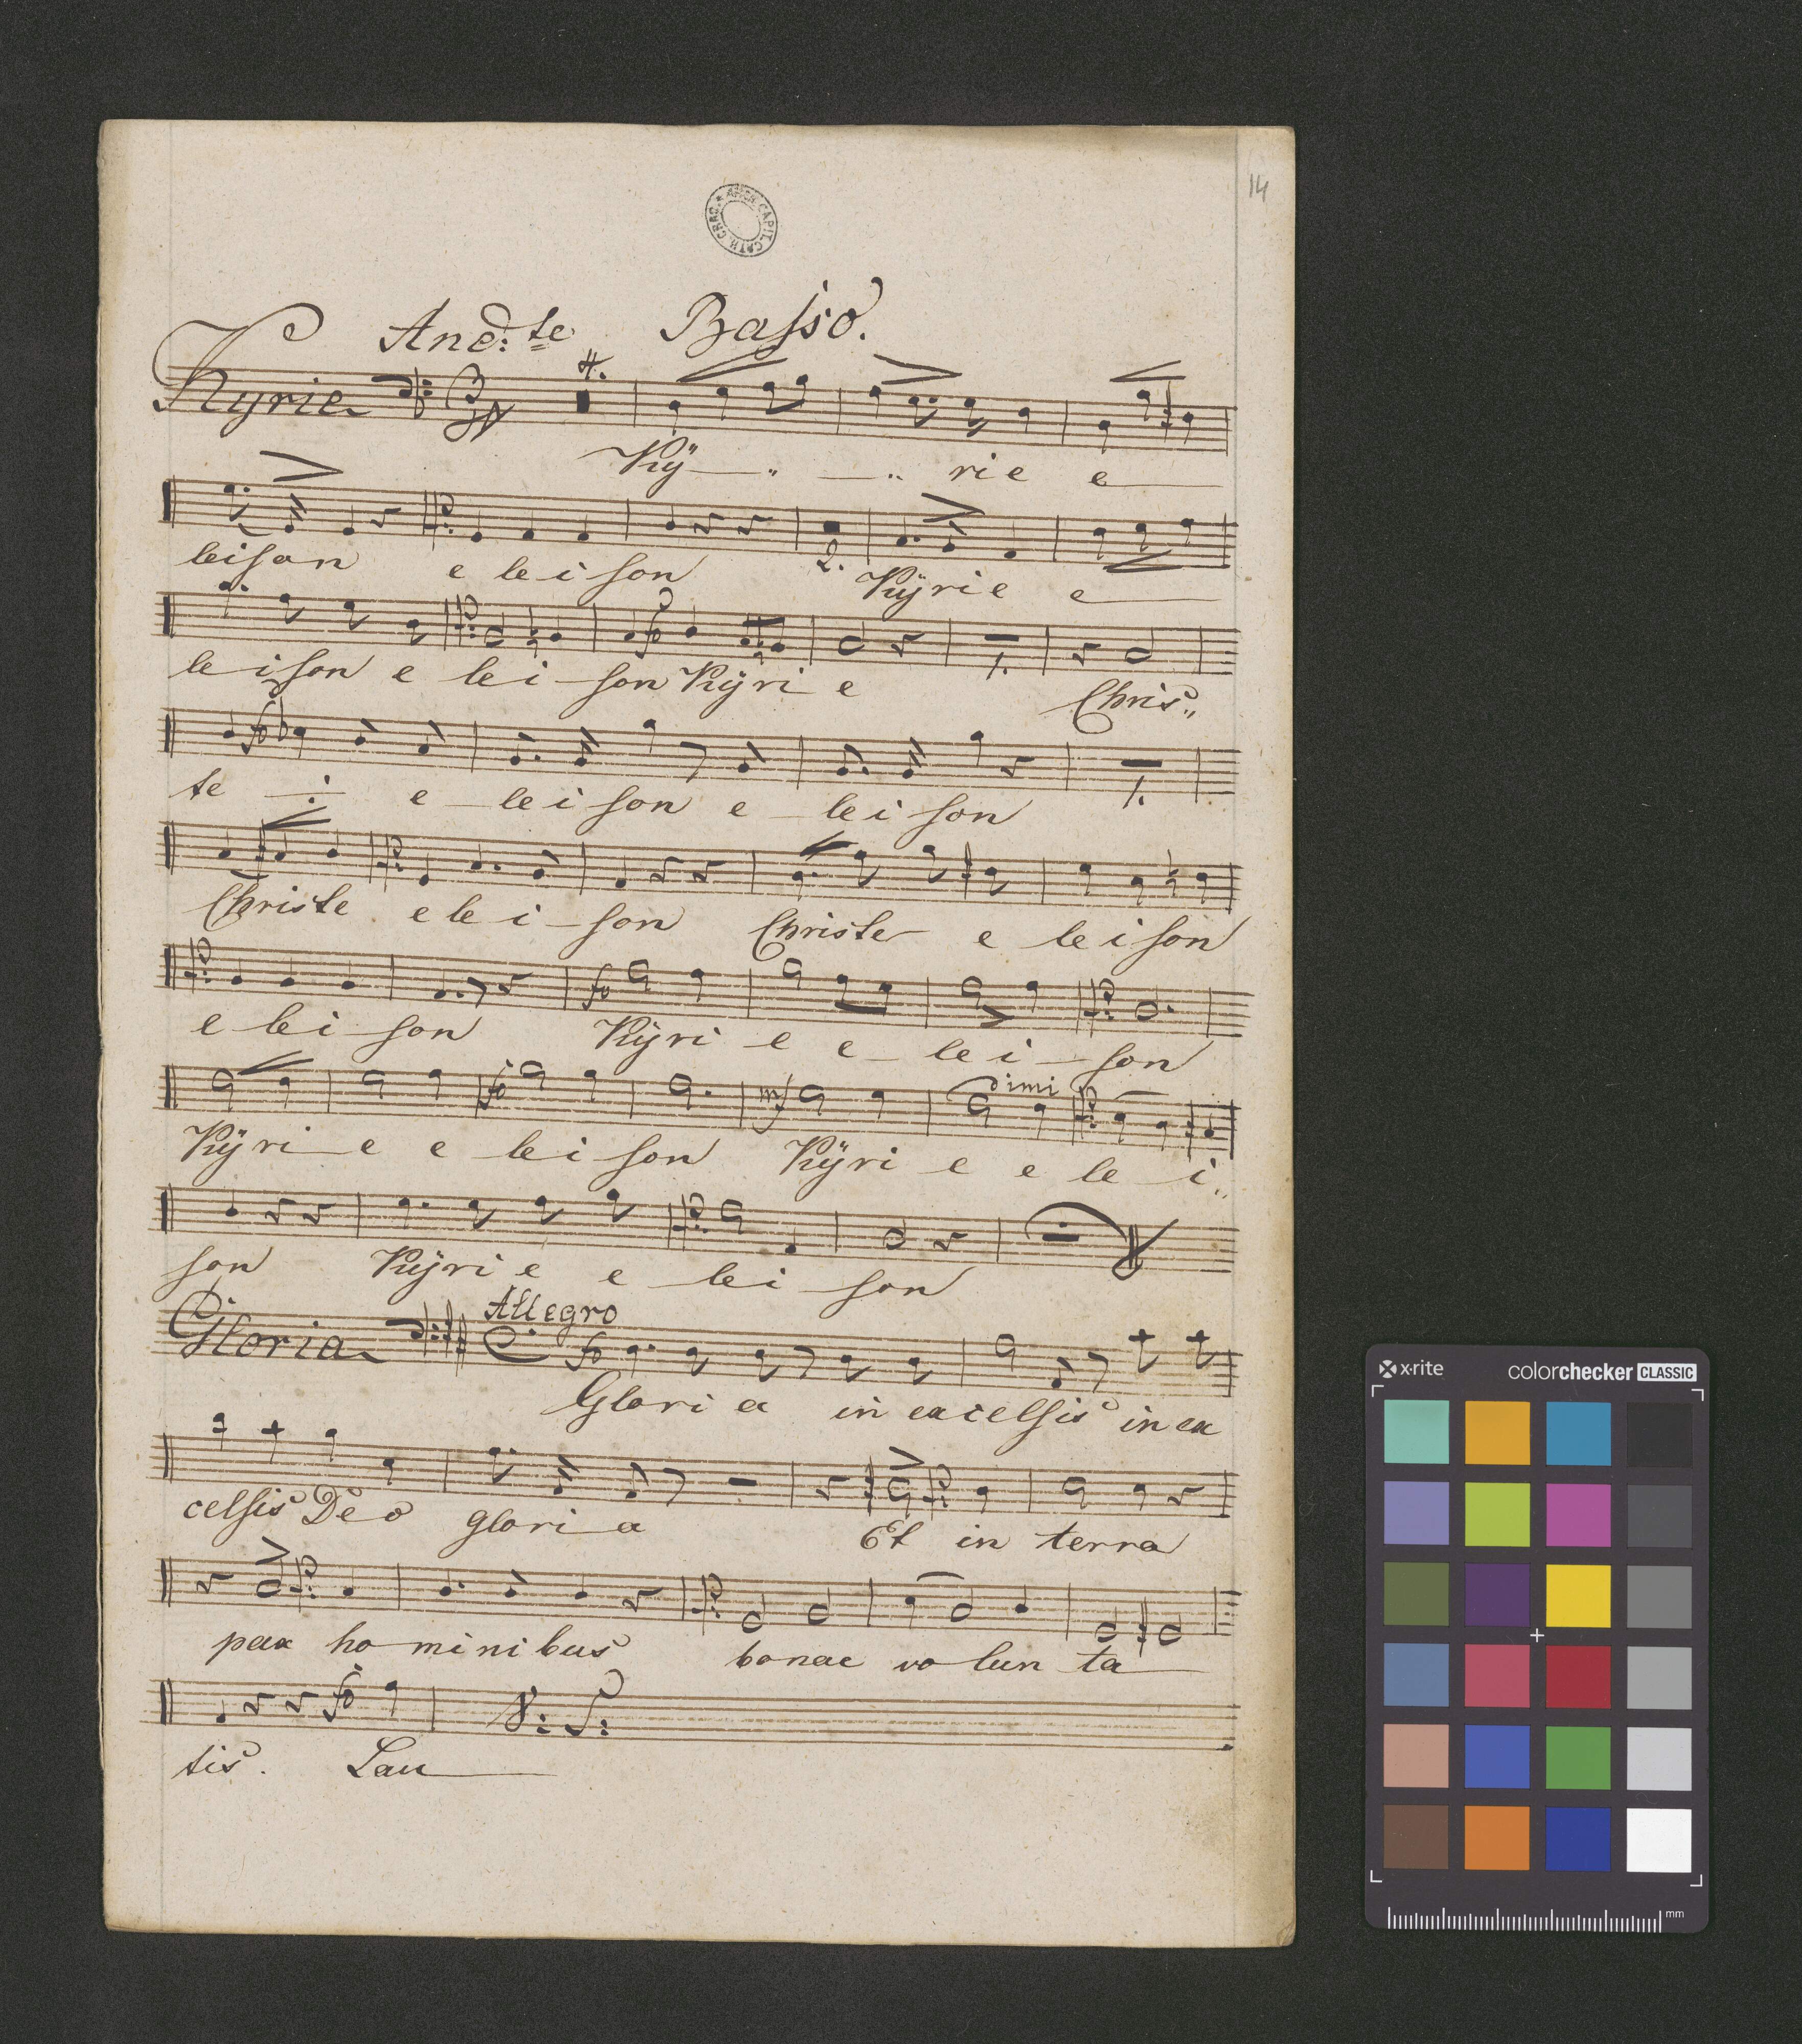 14
ARCH. CAPIT. CATH. CRAC.
And:te Basso.
Kyrie 4.
Kÿ rie e
leison e leison 2. Kÿrie e
leison e lei son Kÿri e 1. Chris
te e leison e leison 1.
Christe e le i son Christe e leison
e lei son fo Kÿri e e le i son
fo mf dimi
Kÿri e e lei son Kÿri e e le i
son Kÿrie e lei son
Gloria Allegro fo
Glori a in excelsis in ex
celsis Deo glori a Et in terra
pax ho mini bus bonae vo lun ta
fo V: S:
tis. Lau
x·rite colorchecker CLASSIC
mm